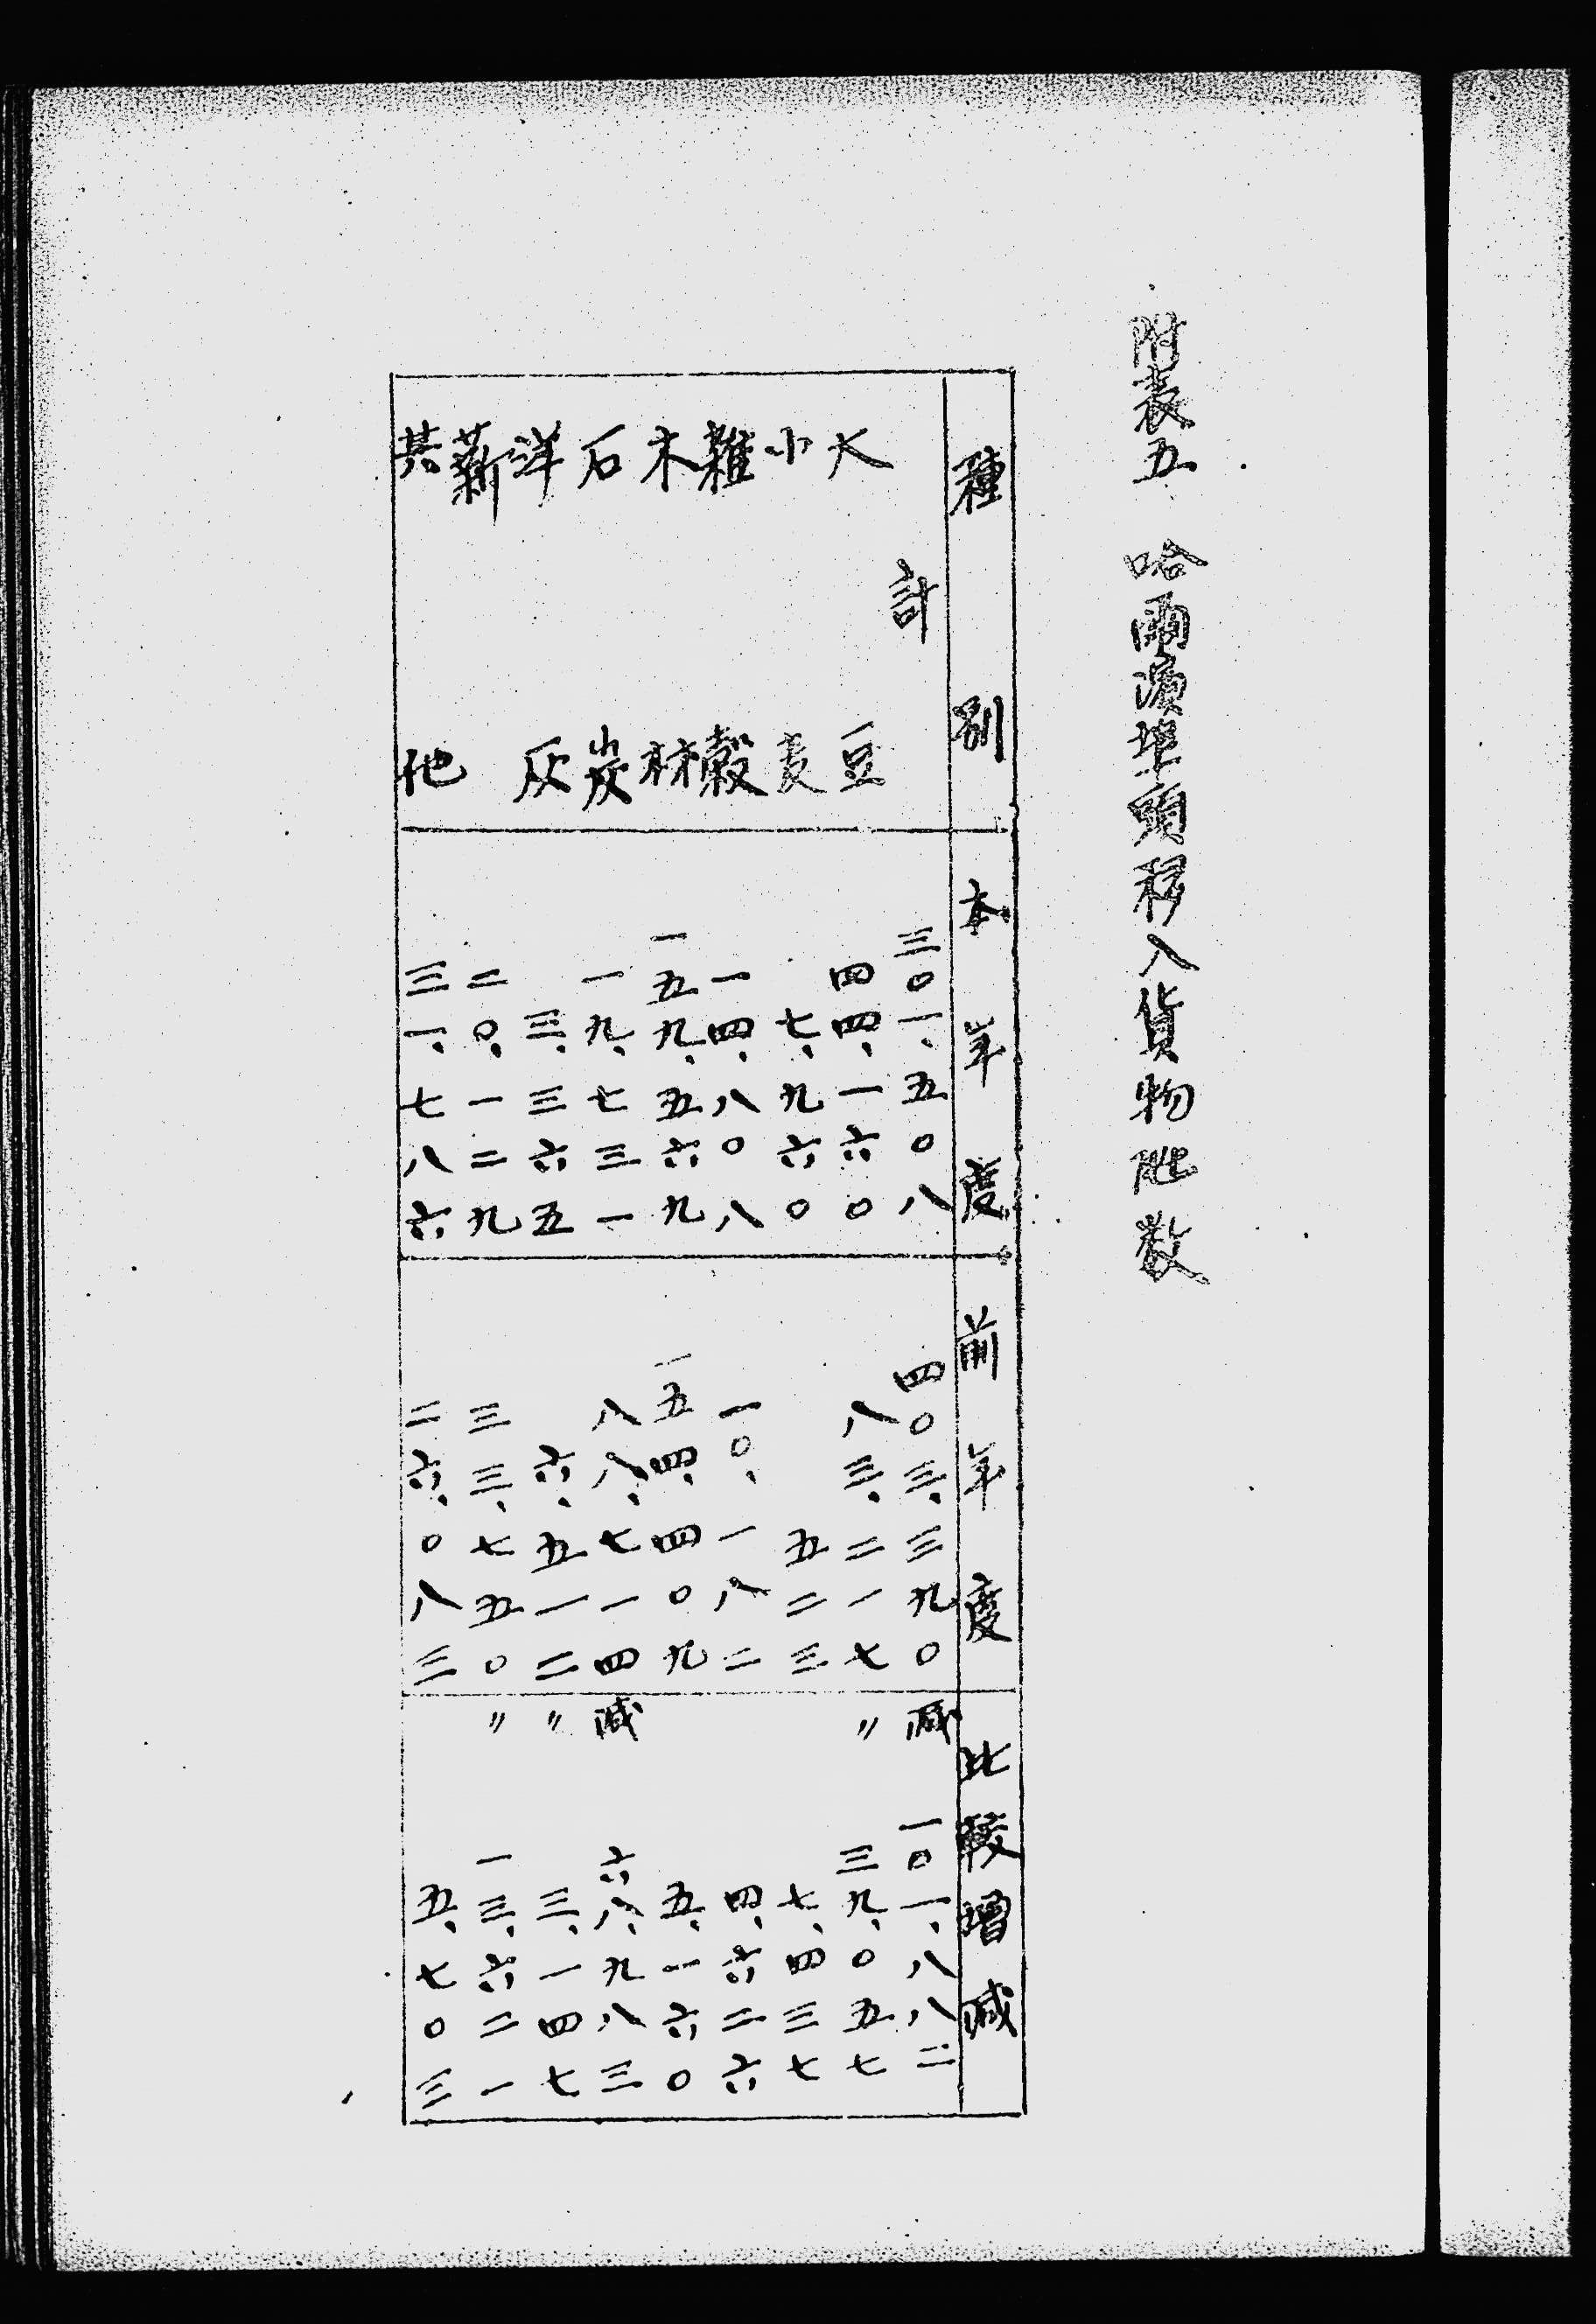 附表五 哈爾濱埠頭移入貨物瓲数
種別 本年度 前年度 比較增減
計 三〇一、五〇八 四〇三、三九〇 減一〇一、八八二
大豆 四四、一六〇 八三、二一七 〃三九、〇五七
小麦 七、九六〇 五二三 七、四三七
雜穀 一四、八〇八 一〇、一八二 四、六二六
木材 一五九、五六九 一五四、四〇九 五、一六〇
石炭 一九、七三一 八八、七一四 減六八、九八三
洋灰 三、三六五 六、五一二 〃三、一四七
薪 二〇、一二九 三三、七五〇 〃一三、六二一
其他 三一、七八六 二六、〇八三 五、七〇三